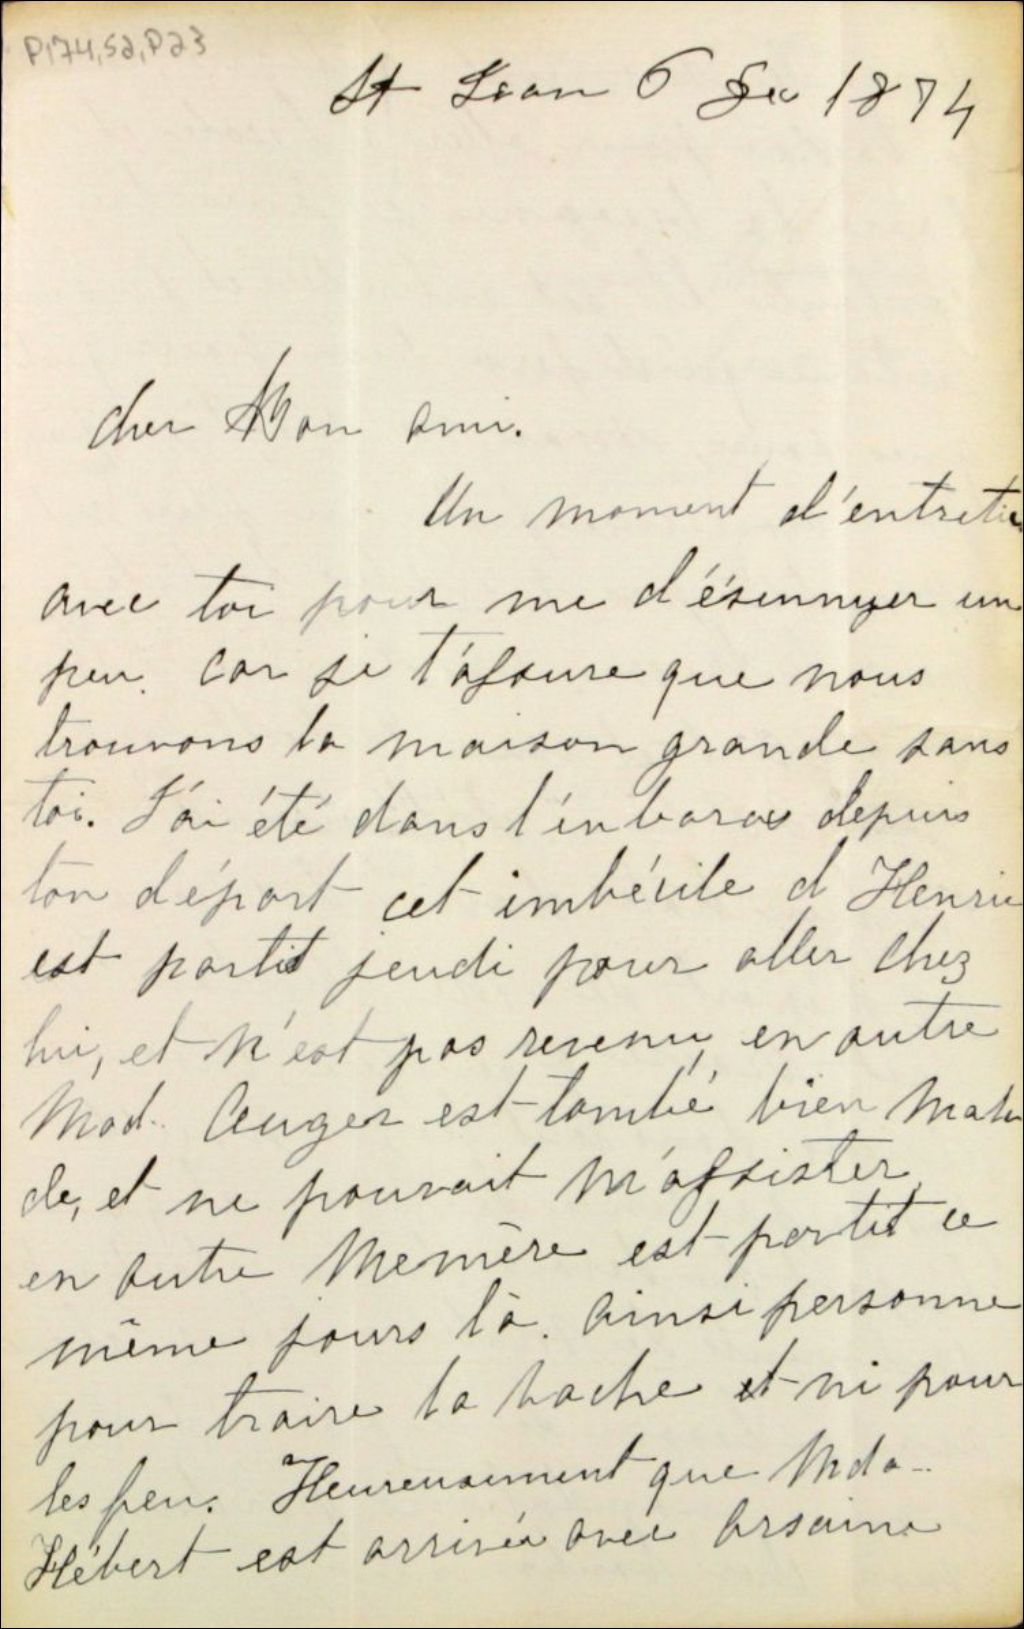 P174,S2,P23
St Jean 6 1874
cher Mon ami.
Un moment d'entretien
avec toi pour me d'ésennuyer un
peu. Car je t'assure que nous
trouvons la maison grande sans
toi. J'ai été dans l'enbaras depuis
ton départ cet imbécile d Henrie
est partit jeudi pour aller chez
lui, et n'est pas revenu, en outre
Mad. Auger est tombé bien mala
de, et ne pouvait m'assister,
en outre Memère est partit ce
même jours là. Ainsi personne
pour traire la vache et ni pour
les feu. Heureusement que Mda
Hébert est arrivée avec Arsaine